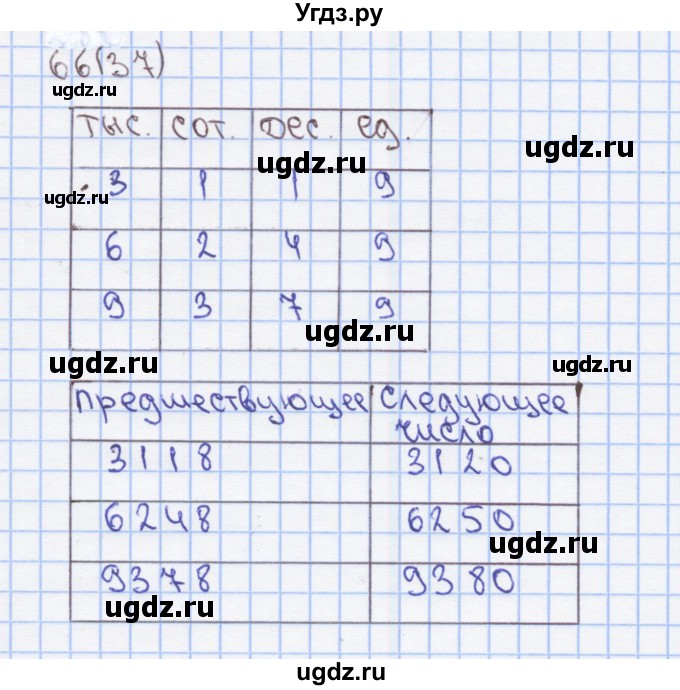 Угдз.ру
66(37)
ugdz.ru
тыс. сот. дес. ед.
ugdz.ru
ugdz.ru
3 1 1 9
ugdz.ru
6 2 4 9
9 3 7 9
ugdz.ru
ugdz.ru
ugdz.ru
предшествующее следующее
число
3118 3120
6248 6250
ugdz.ru
9378 9380
ugdz.ru
ugdz.ru